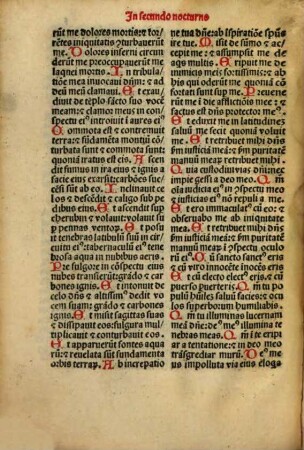 In secundo nocturno
rūt me dolores mortis: ⁊ tor/
rētes iniquitatis ꝓturbauerūt
me. Dolores inferni circūde
derūt me: preoccupauerūt me
laquei mortis In tribula/
tiōe mea inuocaui dn̄m: ⁊ ad
deū meū clamaui Et exau/
diuit de tēplo sctō suo vocē
meam: ⁊ clamor meus in con
spectu eiꝰ introiuit ī aures eiꝰ.
Commota est ⁊ contremuit
terra: ⁊ fūdamēta montiū cō
turbata sunt ⁊ cōmota sunt
quoniā iratus est eis. Ascen
dit fumus in ira eius ⁊ ignis a
facie eius exarsit: carbōes suc/
cēsi sūt ab eo. Inclinauit ce
los ⁊ descēdit: ⁊ caligo sub pe
dibus eius. Et ascendit super
cherubin ⁊ volauit: volauit su
per pennas ventoꝝ. Et po/
suit tenebras latibulū suū in cir
cuitu eiꝰ: tabernaculū eiꝰ tene
brosa aqua in nubibus aeris.
Pre fulgore in cōspectu eius
nubes trāsierūt: grādo ⁊ car
bones ignis. Et intonuit de
celo dn̄s ⁊ altissimꝰ dedit vo
cem suam: grādo ⁊ carbones
ignis. Et misit sagittas suas
⁊ dissipauit eos: fulgura mul
tiplicauit ⁊ conturbauit eos.
Et apparuerūt fontes aqua
rū: ⁊ reuelata sūt fundamenta
orbis terraꝝ. Ab increpatio
ne tua dn̄e: ab īspiratiōe spūs
ire tue. Misit de sūmo ⁊ ac/
cepit me: ⁊ assumpsit me de
aquis multis. Eripuit me de
inimicis meis fortissimis: ⁊ ab
his qui oderūt me quoniā cō
fortati sunt sup me. Preuene
rūt me ī die afflictiōis mee: ⁊
factus est dn̄s protector meꝰ
Et eduxit me in latitudinē:
saluū me fecit quoniā voluit
me. Et retribuet mihi dn̄s
scdm̄ iusticiā meā: ⁊ scdm̄ puri
tatē manuū meaꝝ retribuet mihi
Quia custodiui vias dn̄i: nec
impie gessi a deo meo. Qm̄
oīa iudicia eiꝰ in ꝯspectu meo
⁊ iusticias eiꝰ nō repuli a me.
Et ero immaculatꝰ cū eo: ⁊
obseruabo me ab iniquitate
mea. Et retribuet mihi dn̄s
scdm̄ iusticiā meā: ⁊ scdm̄ puritatē
manuū meaꝝ ī ꝯspectu oculoꝝ
eiꝰ. Cū sancto sanctꝰ eris:
⁊ cū viro innocēte inocēs eris
Et cū electo electꝰ eris: ⁊ cū
peruerso peruerteris. Qm̄ tu po
pulū humilē saluū facies: ⁊ ocu
los superborum humiliabis.
Qm̄ tu illuminas lucernam
meā dn̄e: deꝰ meꝰ illumina te
nebras meas. Qm̄ in te eripi
ar a tentatione: ⁊ in deo meo
trāsgrediar murū. Deꝰ me
us impolluta via eius: eloqa